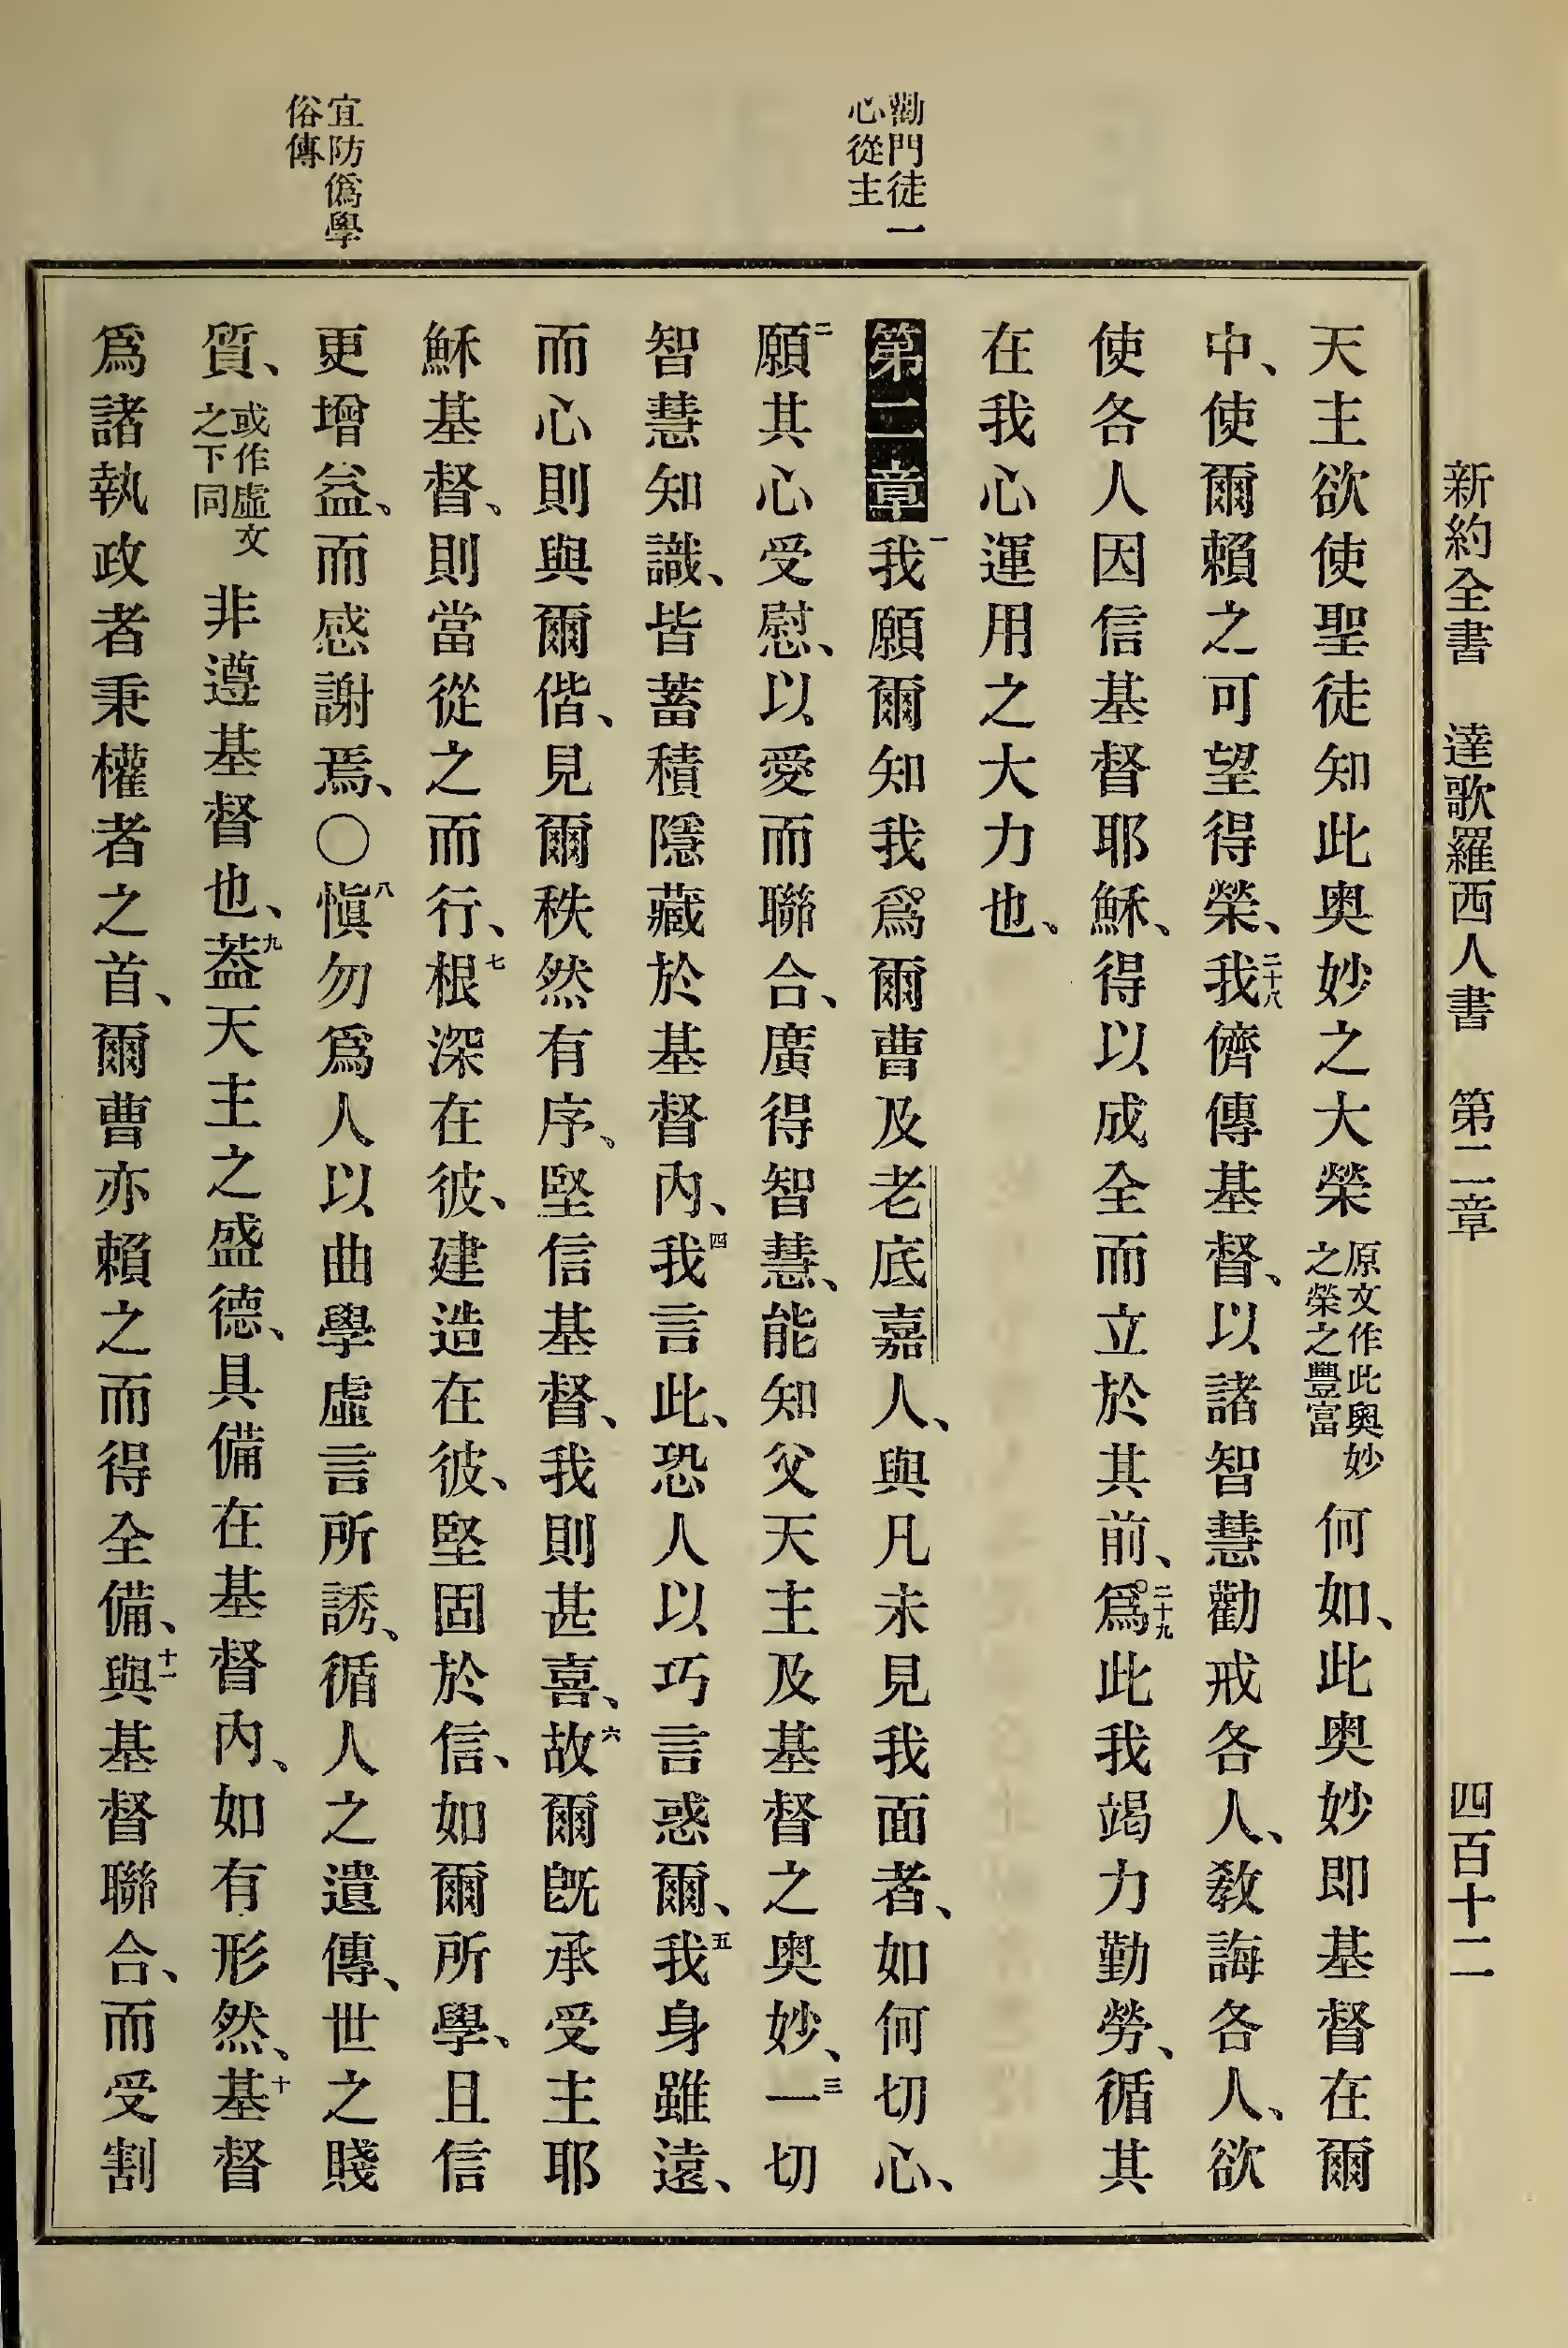 新約全書 達歌羅西人書 第二章 四百十二
勸門徒一
心從主
宜防僞學
俗傳
天主欲使聖徒知此奧妙之大榮原文作此奧妙之榮之豐富何如、此奧妙即基督在爾
中、使爾賴之可望得榮、二十八我儕傳基督、以諸智慧勸戒各人、敎誨各人、欲
使各人因信基督耶穌、得以成全而立於其前、二十九爲此我竭力勤勞、循其
在我心運用之大力也、
第二章一我願爾知我爲爾曹及老底嘉人、與凡未見我面者、如何切心、
二願其心受慰、以愛而聯合、廣得智慧、能知父天主及基督之奧妙、三一切
智慧知識、皆蓄積隱藏於基督內、四我言此、恐人以巧言惑爾、五我身雖遠、
而心則與爾偕、見爾秩然有序、堅信基督、我則甚喜、六故爾旣承受主耶
穌基督、則當從之而行、七根深在彼、建造在彼、堅固於信、如爾所學、且信
更增益、而感謝焉、〇八愼勿爲人以曲學虛言所誘、循人之遺傳、世之賤
質、或作虛文之下同非遵基督也、九葢天主之盛德、具備在基督內、如有形然、十基督
爲諸執政者秉權者之首、爾曹亦賴之而得全備、十一與基督聯合、而受割